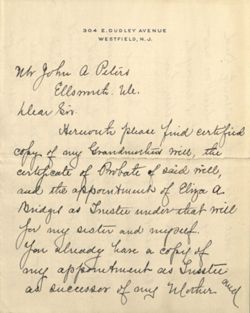 304 E. DUDLEY AVENUE
WESTFIELD, N. J.
Mr John A Peters
Ellsworth, Me.
Dear Sir.
Herewith please find certified
copy of my Grandmothers will, the
certificate of Probate of said will,
and the appointment of Eliza A.
Bridges as Trustee under that will
for my sister and myself.
You already have a copy of
my appointment as Trustee
as successor of my Mother and